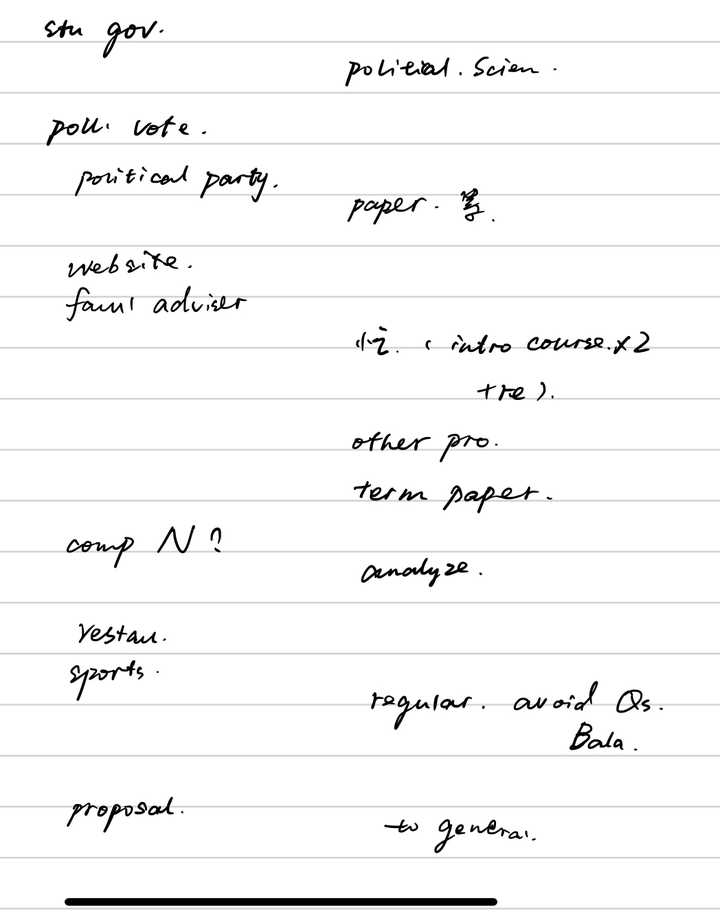 stu gov.
political. Scien.
poll. vote.
political party.
paper.
website.
adviser
忙. ( intro course. x2
+re).
other pro.
term paper.
comp N?
analyze.
restau.
sports.
regular. avoid Qs.
Bala.
proposal.
to general.